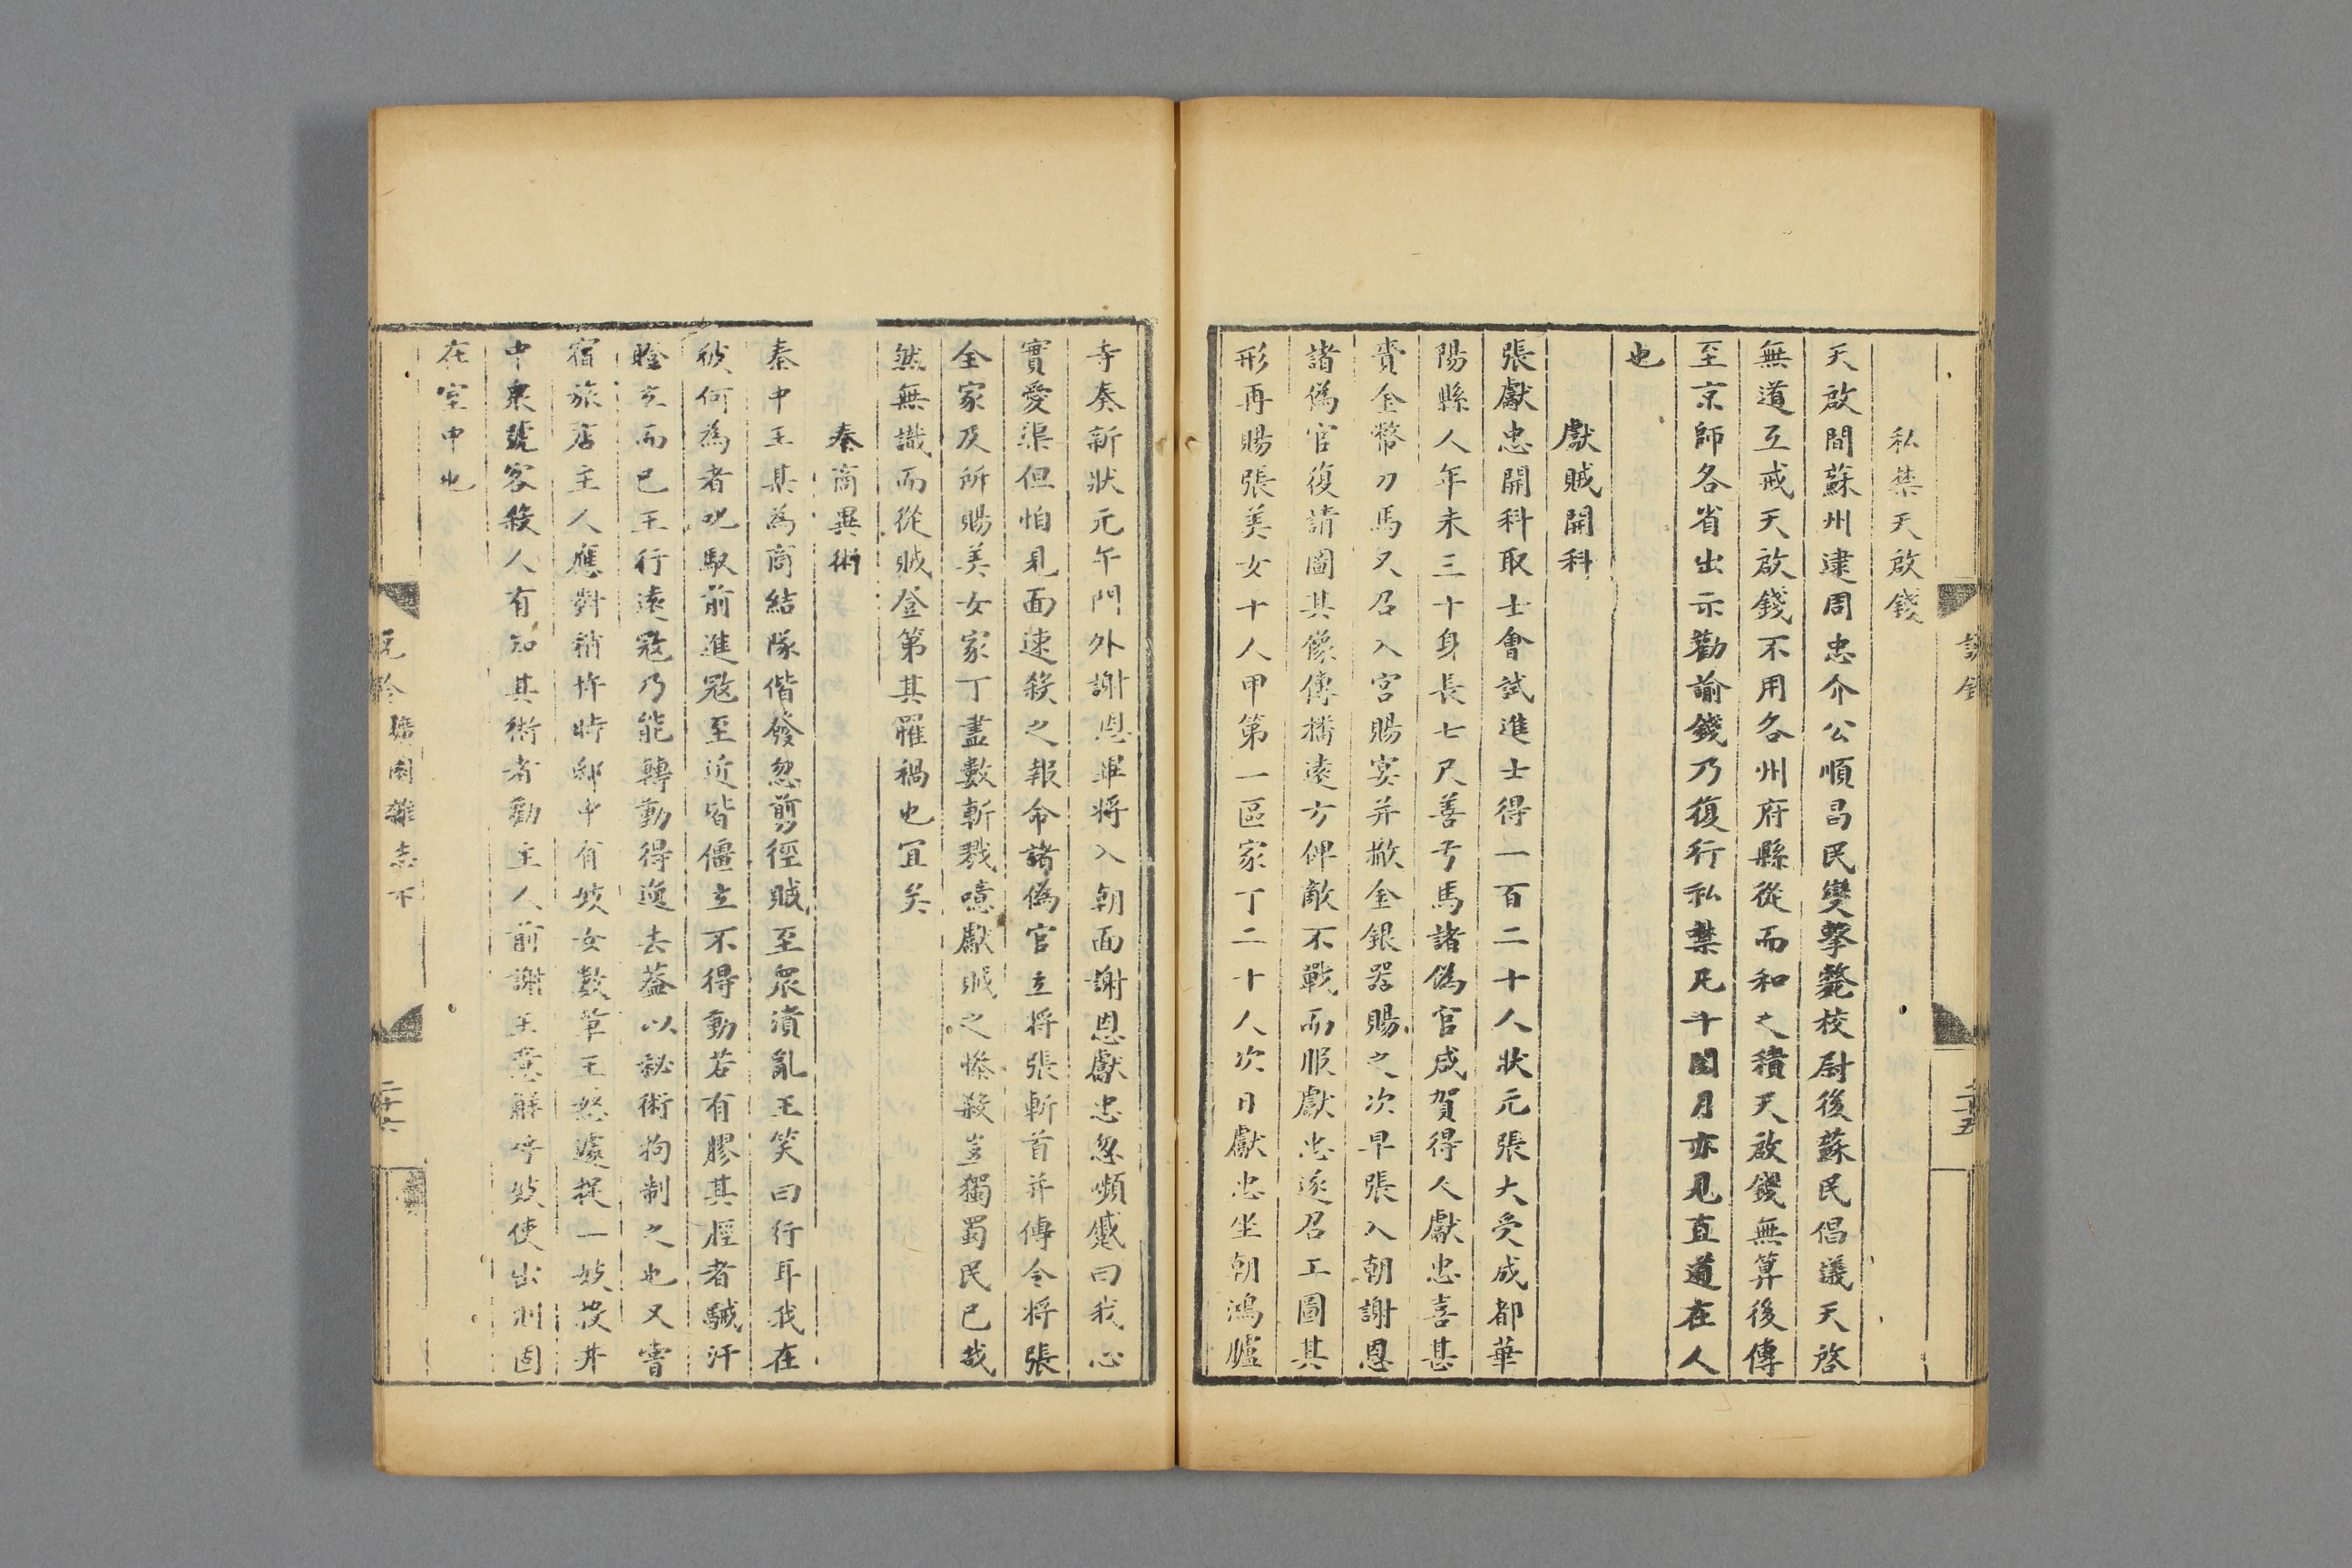 私禁天啟錢
天啟間蘇州逮周忠介公順昌民變擊斃校尉後蘇民倡議天啓
無道互戒天啟錢不用各州府縣從而和之積天啟錢無算後傳
至京師各省出示勸諭錢乃復行私禁凡十閱月亦見直道在人
也
獻賊開科
張獻忠開科取士會試進士得一百二十人狀元張大受成都華
陽縣人年未三十身長七尺善弓馬諸偽官咸賀得人獻忠喜甚
賚金幣刀馬又召入宮賜宴并撤金銀器賜之次早張入朝謝恩
諸偽官復請圖其像傳播遠方俾敵不戰而服獻忠遂召工圖其
形再賜張美女十人甲第一區家丁二十人次日獻忠坐朝鴻臚
寺奏新狀元午門外謝恩畢將入朝面謝恩獻忠忽嚬蹙曰我心
實愛渠但怕見面速殺之報命諸偽官立將張斬首并傳令將張
全家及所賜美女家丁盡數斬戮噫獻賊之慘殺豈獨蜀民已哉
然無識而從賊登第其罹禍也宜矣
秦商異術
秦中王某為商結隊偕發忽剪徑賊至眾潰亂王笑曰行耳我在
彼何為者叱馭前進寇至近皆僵立不得動若有膠其脛者駴汗
瞪立而已王行遠寇乃能轉動得逸去葢以秘術拘制之也又嘗
宿旅店主人應對稍忤時鄰中有妓女數輩王怒遽捉一妓投井
中衆號客殺人有知其術者勸主人前謝王意解呼妓使出則固
在室中也
堅瓠廣集 雜志下
二十六
二十五